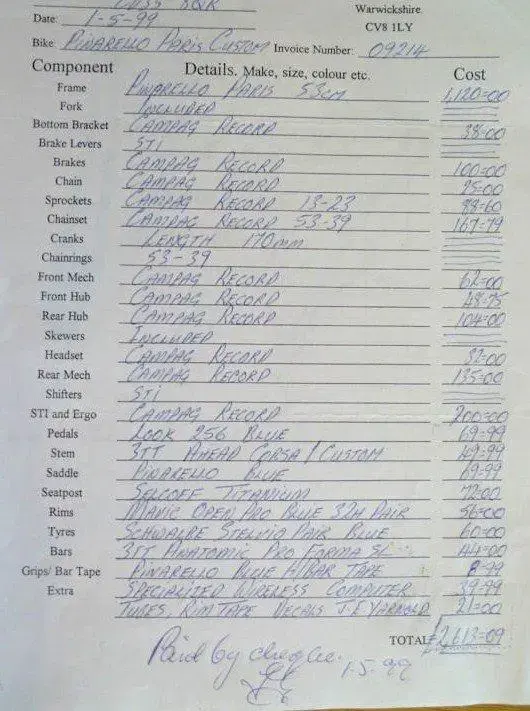 CV35 8QR
Warwickshire
Date: 1-5-99
CV8 1LY
Bike: PINARELLO PARIS CUSTOM Invoice Number: 09214
Component Details. Make, size, colour etc. Cost
Frame PINARELLO PARIS 53cm 1,120=00
Fork INCLUDED
Bottom Bracket CAMPAG RECORD 38=00
Brake Levers STI
Brakes CAMPAG RECORD 100=00
Chain CAMPAG RECORD 25=00
Sprockets CAMPAG RECORD 13-23 88-60
Chainset CAMPAG RECORD 53-39 167-79
Cranks LENGTH 170mm
Chainrings 53-39
Front Mech CAMPAG RECORD 62=00
Front Hub CAMPAG RECORD 48-75
Rear Hub CAMPAG RECORD 104=00
Skewers INCLUDED
Headset CAMPAG RECORD 32=00
Rear Mech CAMPAG RECORD 135=00
Shifters STI
STI and Ergo CAMPAG RECORD 200=00
Pedals LOOK 256 BLUE 69-99
Stem 3TT AHEAD CORSA / CUSTOM 49-99
Saddle PINARELLO BLUE 49-99
Seatpost SELCOFF TITANIUM 72=00
Rims MAVIC OPEN PRO BLUE 32H PAIR 56=00
Tyres SCHWALBE STELVIO PAIR BLUE 60=00
Bars 3TT ANATOMIC PRO FORMA SL 44=00
Grips/ Bar Tape PINARELLO BLUE H/BAR TAPE 8-99
Extra SPECIALIZED WIRELESS COMPUTER 39-99
TUBES, RIM TAPE DECALS J.E YARNOLD 21=00
TOTAL £2,613-09
Paid by cheque.
1-5-99